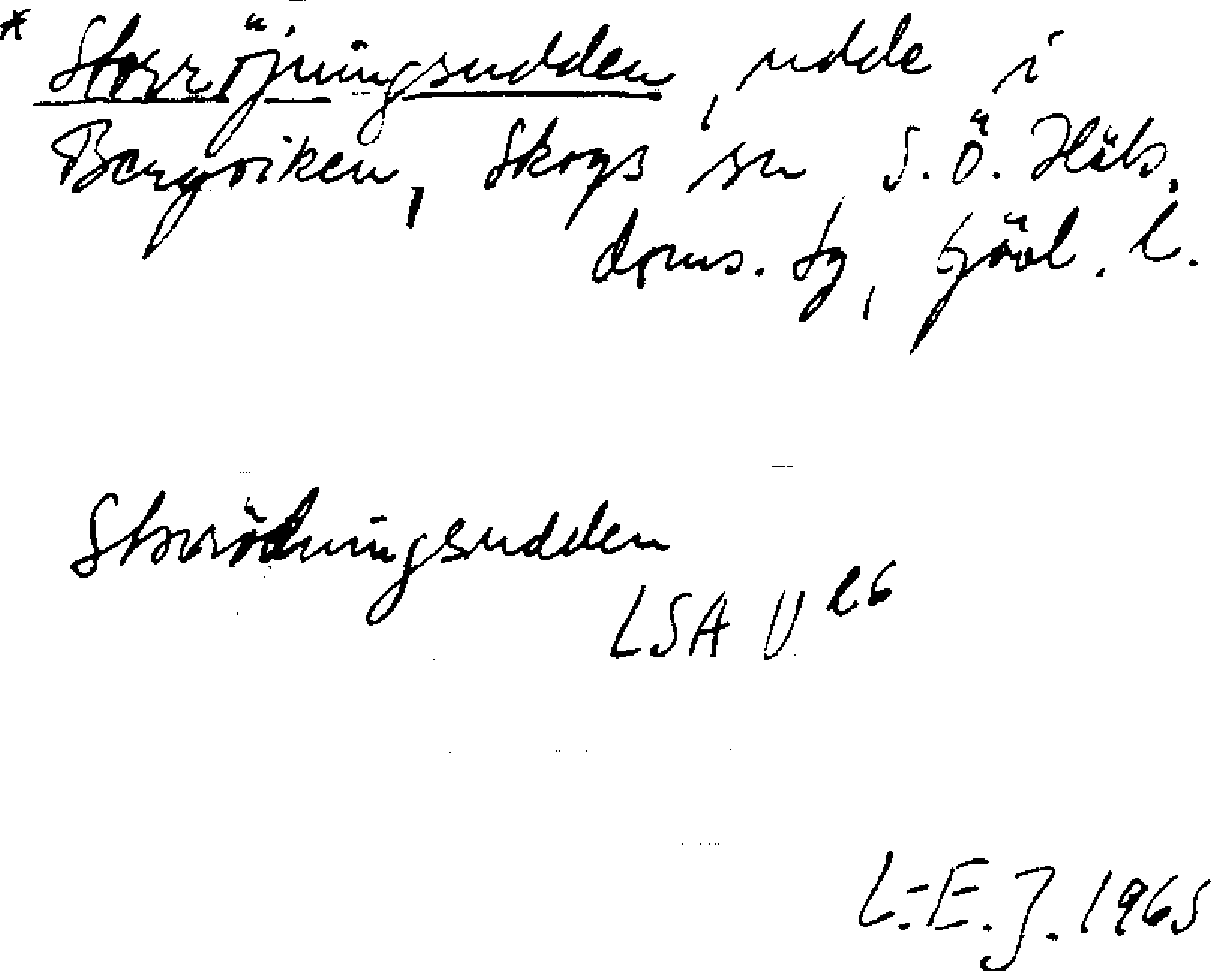 * Storröjningsudden, udde i
Bergviken, Skogs sn S.Ö. Häls.
doms. tg, Gävl. l.
Storrödningsudden
LSA U
L.-E. J. 1965